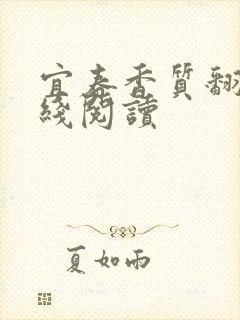 宜春香質翻
綫閱讀
夏如雨